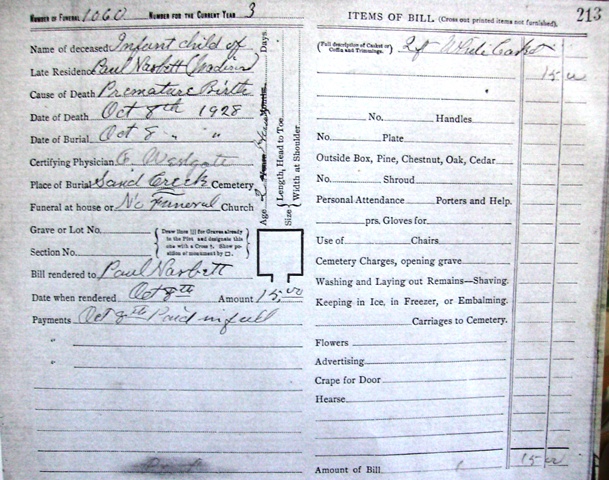 NUMBER OF FUNERAL 1060 NUMBER FOR THE CURRENT YEAR 3
Name of deceased Infant child of
Late Residence Paul Nasbett (Indian)
Cause of Death Premature Birth
Date of Death Oct 8th 1928
Date of Burial Oct 8 " "
Certifying Physician Westgate
Place of Burial Sand Creek Cemetery
Funeral at house or No Funeral Church
Grave or Lot No.
Section No.
Draw lines ||| for Graves already
in the Plot and designate this
one with a Cross †. Show po-
sition of monument by □.
Bill rendered to Paul Nasbett
Date when rendered Oct 8th Amount 15.00
Payments Oct 8th Paid in full
"
"
Age 2 Hours Days
Size
Length, Head to Toe
Width at Shoulder
ITEMS OF BILL (Cross out printed items not furnished). 213
(Full description of Casket or
Coffin and Trimmings.) 2 ft White Casket
15 00
No. Handles
No. Plate
Outside Box, Pine, Chestnut, Oak, Cedar
No. Shroud
Personal Attendance Porters and Help.
prs. Gloves for
Use of Chairs
Cemetery Charges, opening grave
Washing and Laying out Remains—Shaving.
Keeping in Ice, in Freezer, or Embalming.
Carriages to Cemetery.
Flowers
Advertising
Crape for Door
Hearse
Amount of Bill 15 00